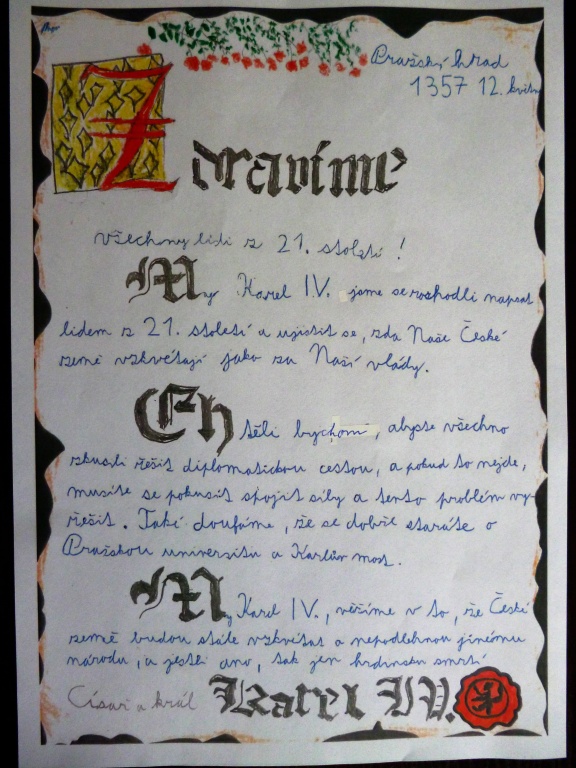 Pražský hrad
1357 12. květn
Zdravíme
všechny lidi z 21. století!
My Karel IV. jsme se rozhodli napsat
lidem z 21. století a ujistit se, zda Naše České
země vzkvétají jako za Naší vlády.
Chtěli bychom, abyste všechno
zkusili řešit diplomatickou cestou, a pokud to nejde,
musíte se pokusit spojit síly a tento problém vy-
řešit. Také doufáme, že se dobře staráte o
Pražskou universitu a Karlův most.
My Karel IV., věříme v to, že České
země budou stále vzkvétat a nepodlehnou jinému
národu, a jestli ano, tak jen hrdinsku smrtí
Císař a král Karel IV.